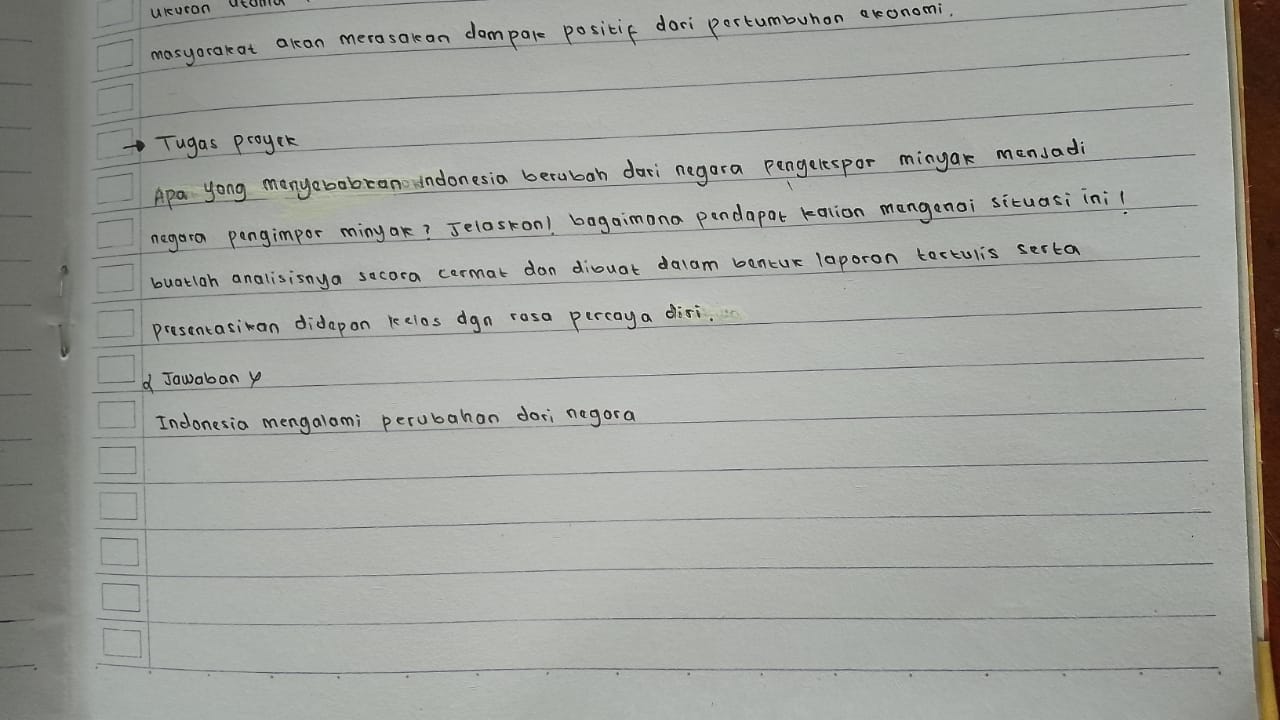 ukuran utama
masyarakat akan merasakan dampak positif dari pertumbuhan ekonomi.
→ Tugas proyek
Apa yang menyebabkan indonesia berubah dari negara pengekspor minyak menjadi
negara pengimpor minyak? Jelaskan! bagaimana pendapat kalian mengenai situasi ini!
buatlah analisisnya secara cermat dan dibuat dalam bentuk laporan tertulis serta
presentasikan didepan kelas dgn rasa percaya diri.
Jawaban
Indonesia mengalami perubahan dari negara